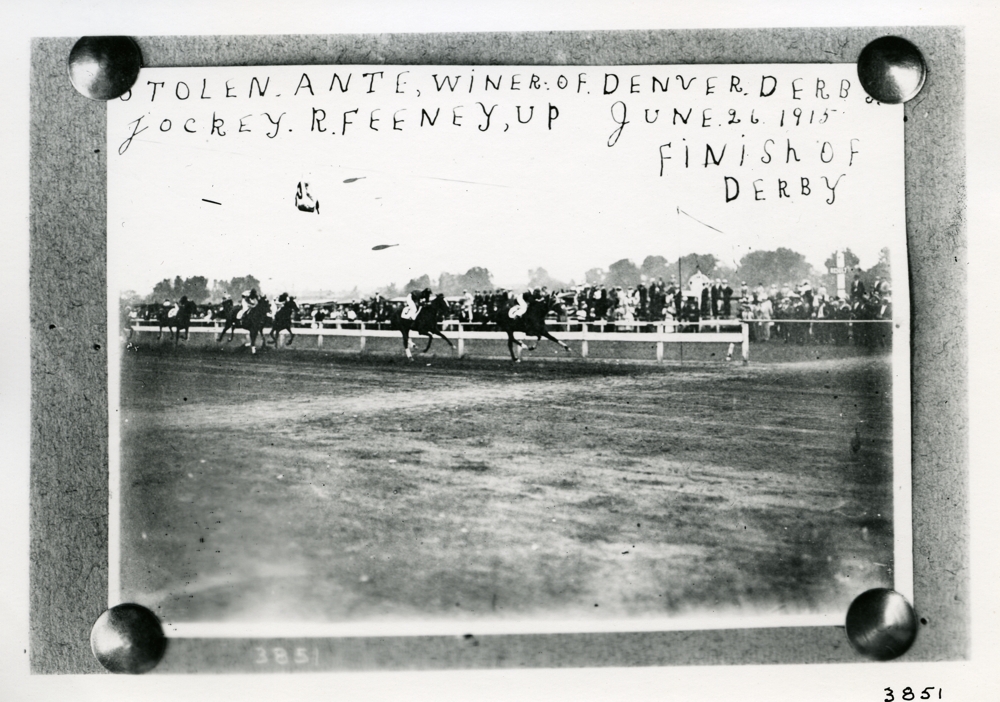 STOLEN. ANTE, WINER. OF. DENVER. DERBY.
JOCKEY. R. FEENEY, UP JUNE. 26. 1915
FINISH OF
DERBY
3851
3851